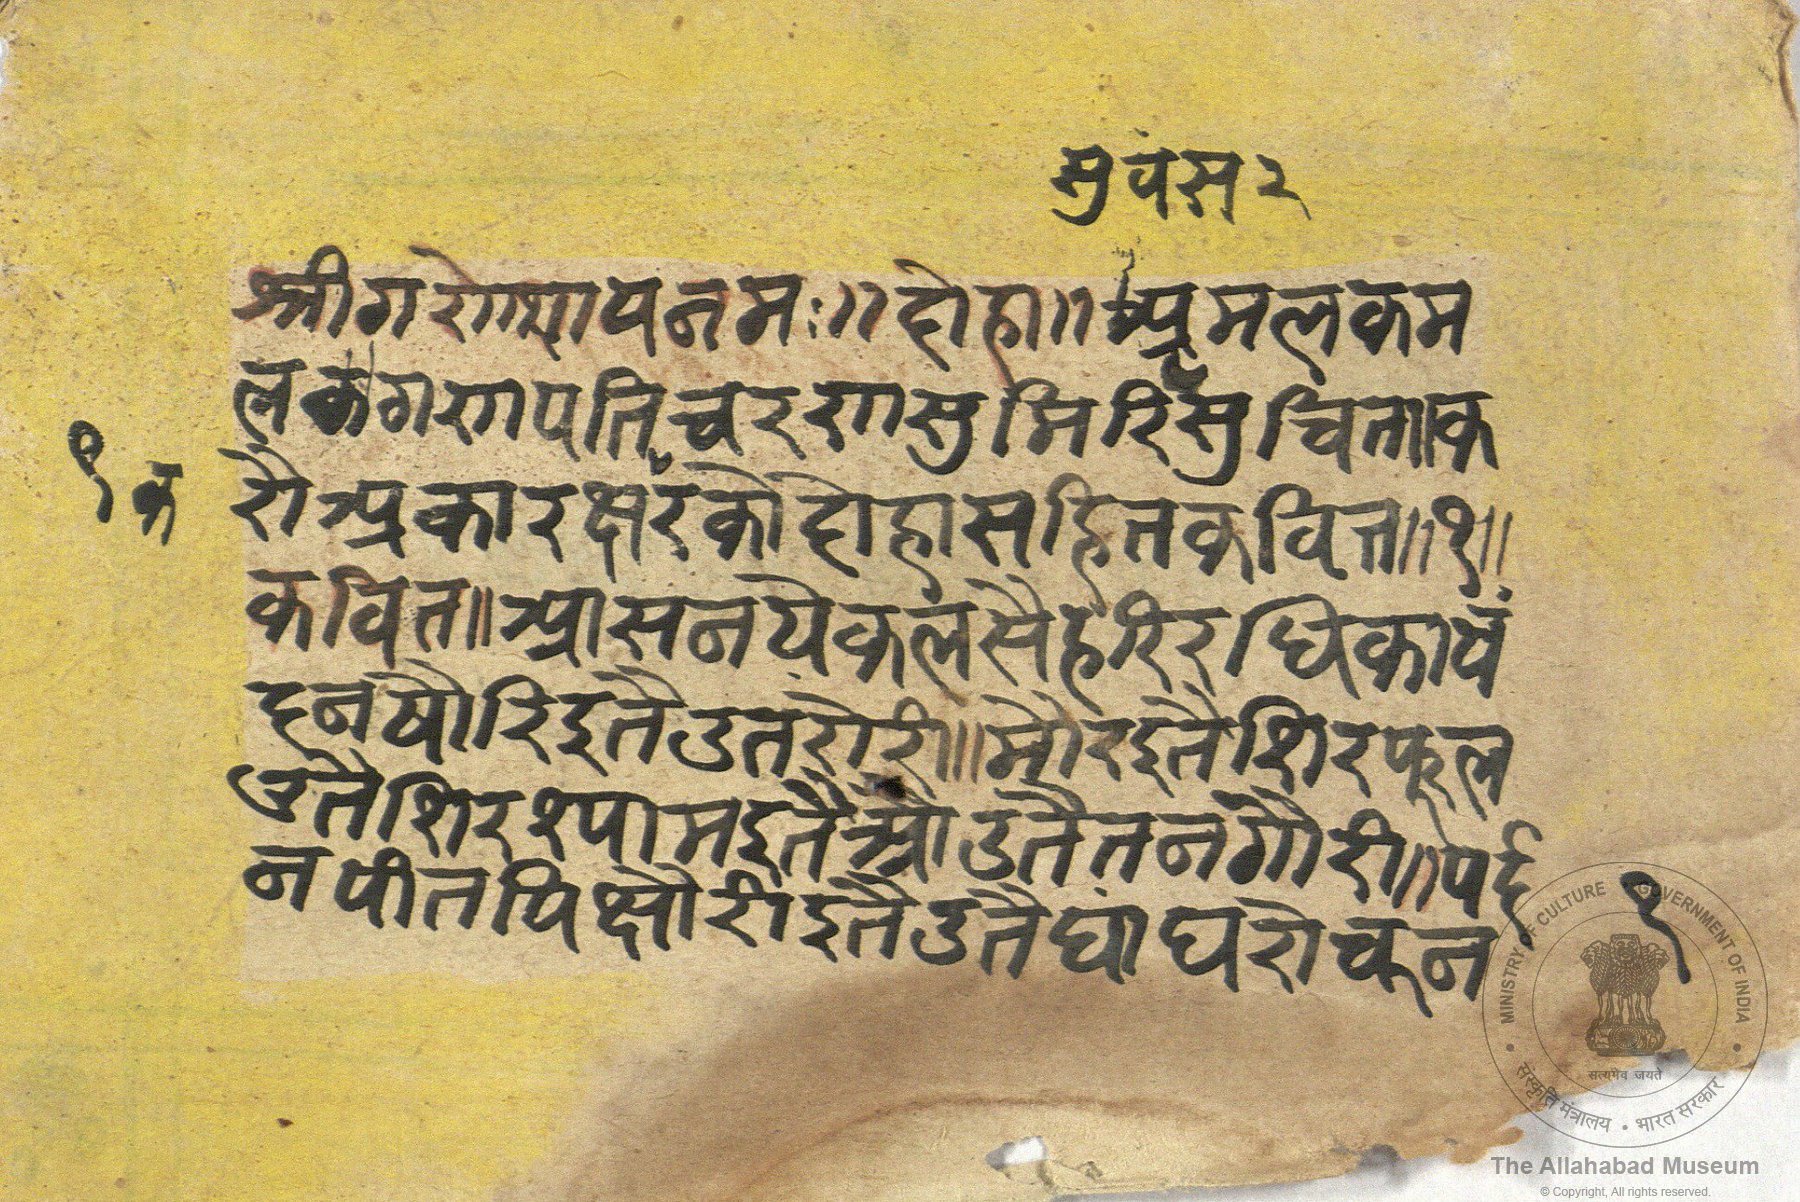 सुवंस २
श्रीगणेशायनमः॥दोहा॥अमलकम
लकगणपतिचरणसुमिरिसुचित॥क
रौअकारक्षरकोदोहासहितकवित॥१॥
१ क
कवित॥आसनयेकलसैहरिरधिकाषं
दनषौरिइतैउतरोरी॥मोरइतैशिरफूल
उतैशिरश्यामइतैऔउतैतनगौरी॥पर्द
नपीतपिक्षौरीइतैउतैघांघरोचून
१
MINISTRY OF CULTURE
GOVERNMENT OF INDIA
सत्यमेव जयते
संस्कृति मंत्रालय • भारत सरकार
The Allahabad Museum
© Copyright, All rights reserved.